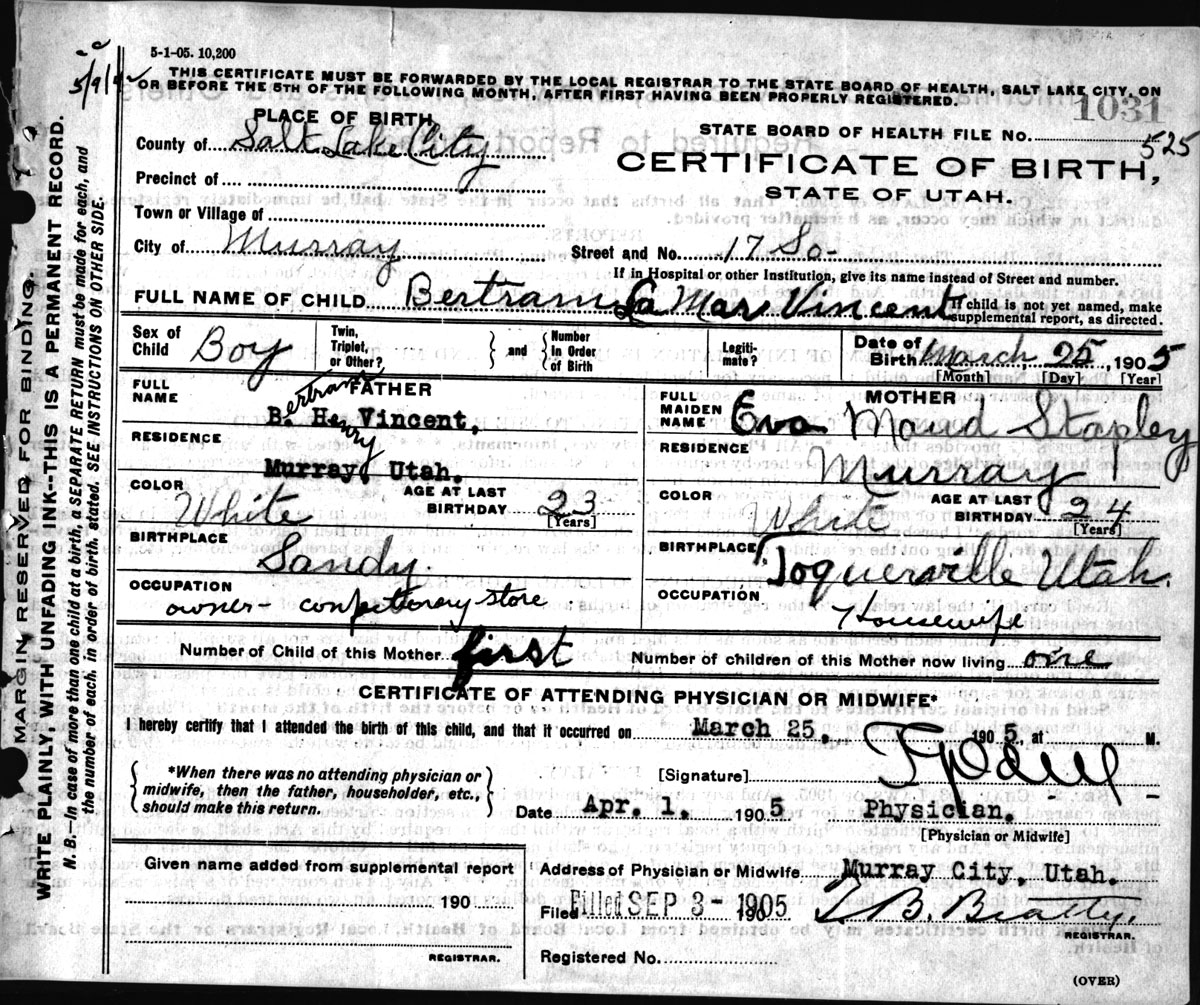 5-1-05. 10,200
5/9/42
THIS CERTIFICATE MUST BE FORWARDED BY THE LOCAL REGISTRAR TO THE STATE BOARD OF HEALTH, SALT LAKE CITY, ON
OR BEFORE THE 5TH OF THE FOLLOWING MONTH, AFTER FIRST HAVING BEEN PROPERLY REGISTERED.
1031
PLACE OF BIRTH,
STATE BOARD OF HEALTH FILE NO. 525
County of Salt Lake City
CERTIFICATE OF BIRTH,
Precinct of
STATE OF UTAH.
Town or Village of
City of Murray Street and No. 17 So-
If in Hospital or other Institution, give its name instead of Street and number.
FULL NAME OF CHILD Bertram La Mar Vincent
If child is not yet named, make
supplemental report, as directed.
Sex of Child Boy
Twin, Triplet, or Other?
and
Number in Order of Birth
Legiti-mate?
Date of Birth March 25, 1905
[Month] [Day] [Year]
FATHER
FULL NAME Bertram Henry
B. H. Vincent,
RESIDENCE
Murray, Utah.
COLOR White
AGE AT LAST BIRTHDAY 23
[Years]
BIRTHPLACE Sandy.
OCCUPATION
owner- confectionary store
MOTHER
FULL MAIDEN NAME Eva Maud Stapley
RESIDENCE
Murray
COLOR White
AGE AT LAST BIRTHDAY 24
[Years]
BIRTHPLACE Toquerville Utah.
OCCUPATION
Housewife
Number of Child of this Mother first
Number of children of this Mother now living one
CERTIFICATE OF ATTENDING PHYSICIAN OR MIDWIFE*
I hereby certify that I attended the birth of this child, and that it occurred on March 25, 1905, at M.
*When there was no attending physician or
midwife, then the father, householder, etc.,
should make this return.
[Signature]
Date Apr. 1, 1905 Physician.
[Physician or Midwife]
Given name added from supplemental report
190
REGISTRAR.
Address of Physician or Midwife Murray City, Utah.
Filed Filed SEP 3- 1905 190 B. Beatty.
REGISTRAR.
Registered No.
(OVER)
MARGIN RESERVED FOR BINDING.
WRITE PLAINLY, WITH UNFADING INK--THIS IS A PERMANENT RECORD.
N. B. In case of more than one child at a birth, a SEPARATE RETURN must be made for each, and
the number of each, in order of birth, stated. SEE INSTRUCTIONS ON OTHER SIDE.